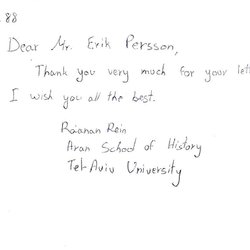 . 88
Dear Mr. Erik Persson,
Thank you very much for your let
I wish you all the best.
Raanan Rein
Aran School of History
Tel Aviv University